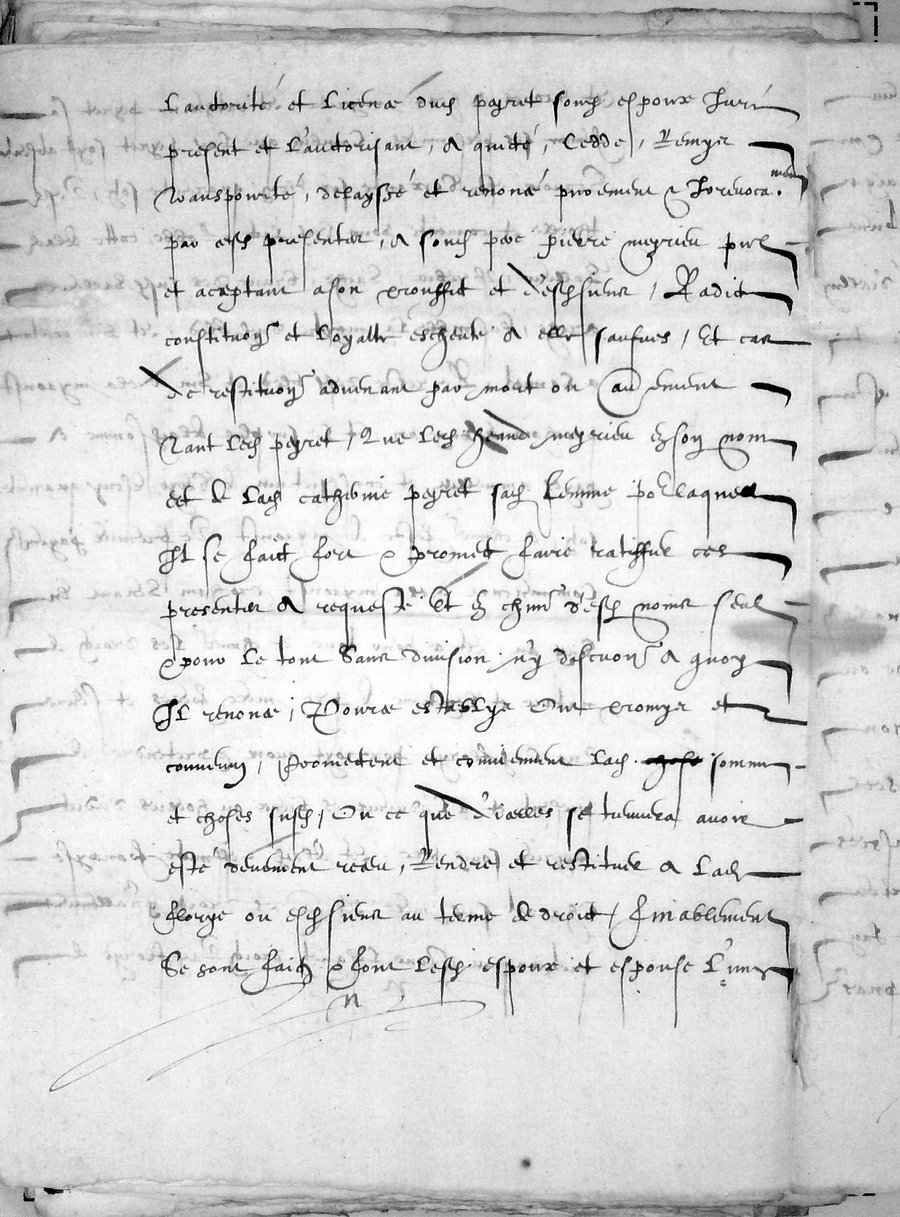 L'auctorité et licence dud peyret sond espoux Juré
present et l'auctorisant, A quicté, Cedde, Remys
transporté, delayssé et renoncé purement & Irrevoca.ment
par ces presentes, A sond pere pierre meyrieu pnt
et aceptant a son prouffit et d'essiens, Ladit
constituon et loyalle escheute A elle saufves, Et cas
de restituon advenant par mort ou aultrement
tant led peyret, Que led meyrieu en son nom
et de lad catherine peyret sad femme po laquelle
Il se faict fort & promet faire rattiffier ces
presentes A requeste Et en chun desd noms seul
& pour le tout Sans division ny discution A quoy
Il renonce, Pource establys Ont promys et
convenu, Promettent et conviennent lad somme
et choses susd, Ou ce que d'icelles se treuvera avoir
esté deuement receu, Rendre et restituer A lad
florye ou esd siens au terme de droit, finablement
Se sont faictz & font lesd espoux et espouse L'ung
n